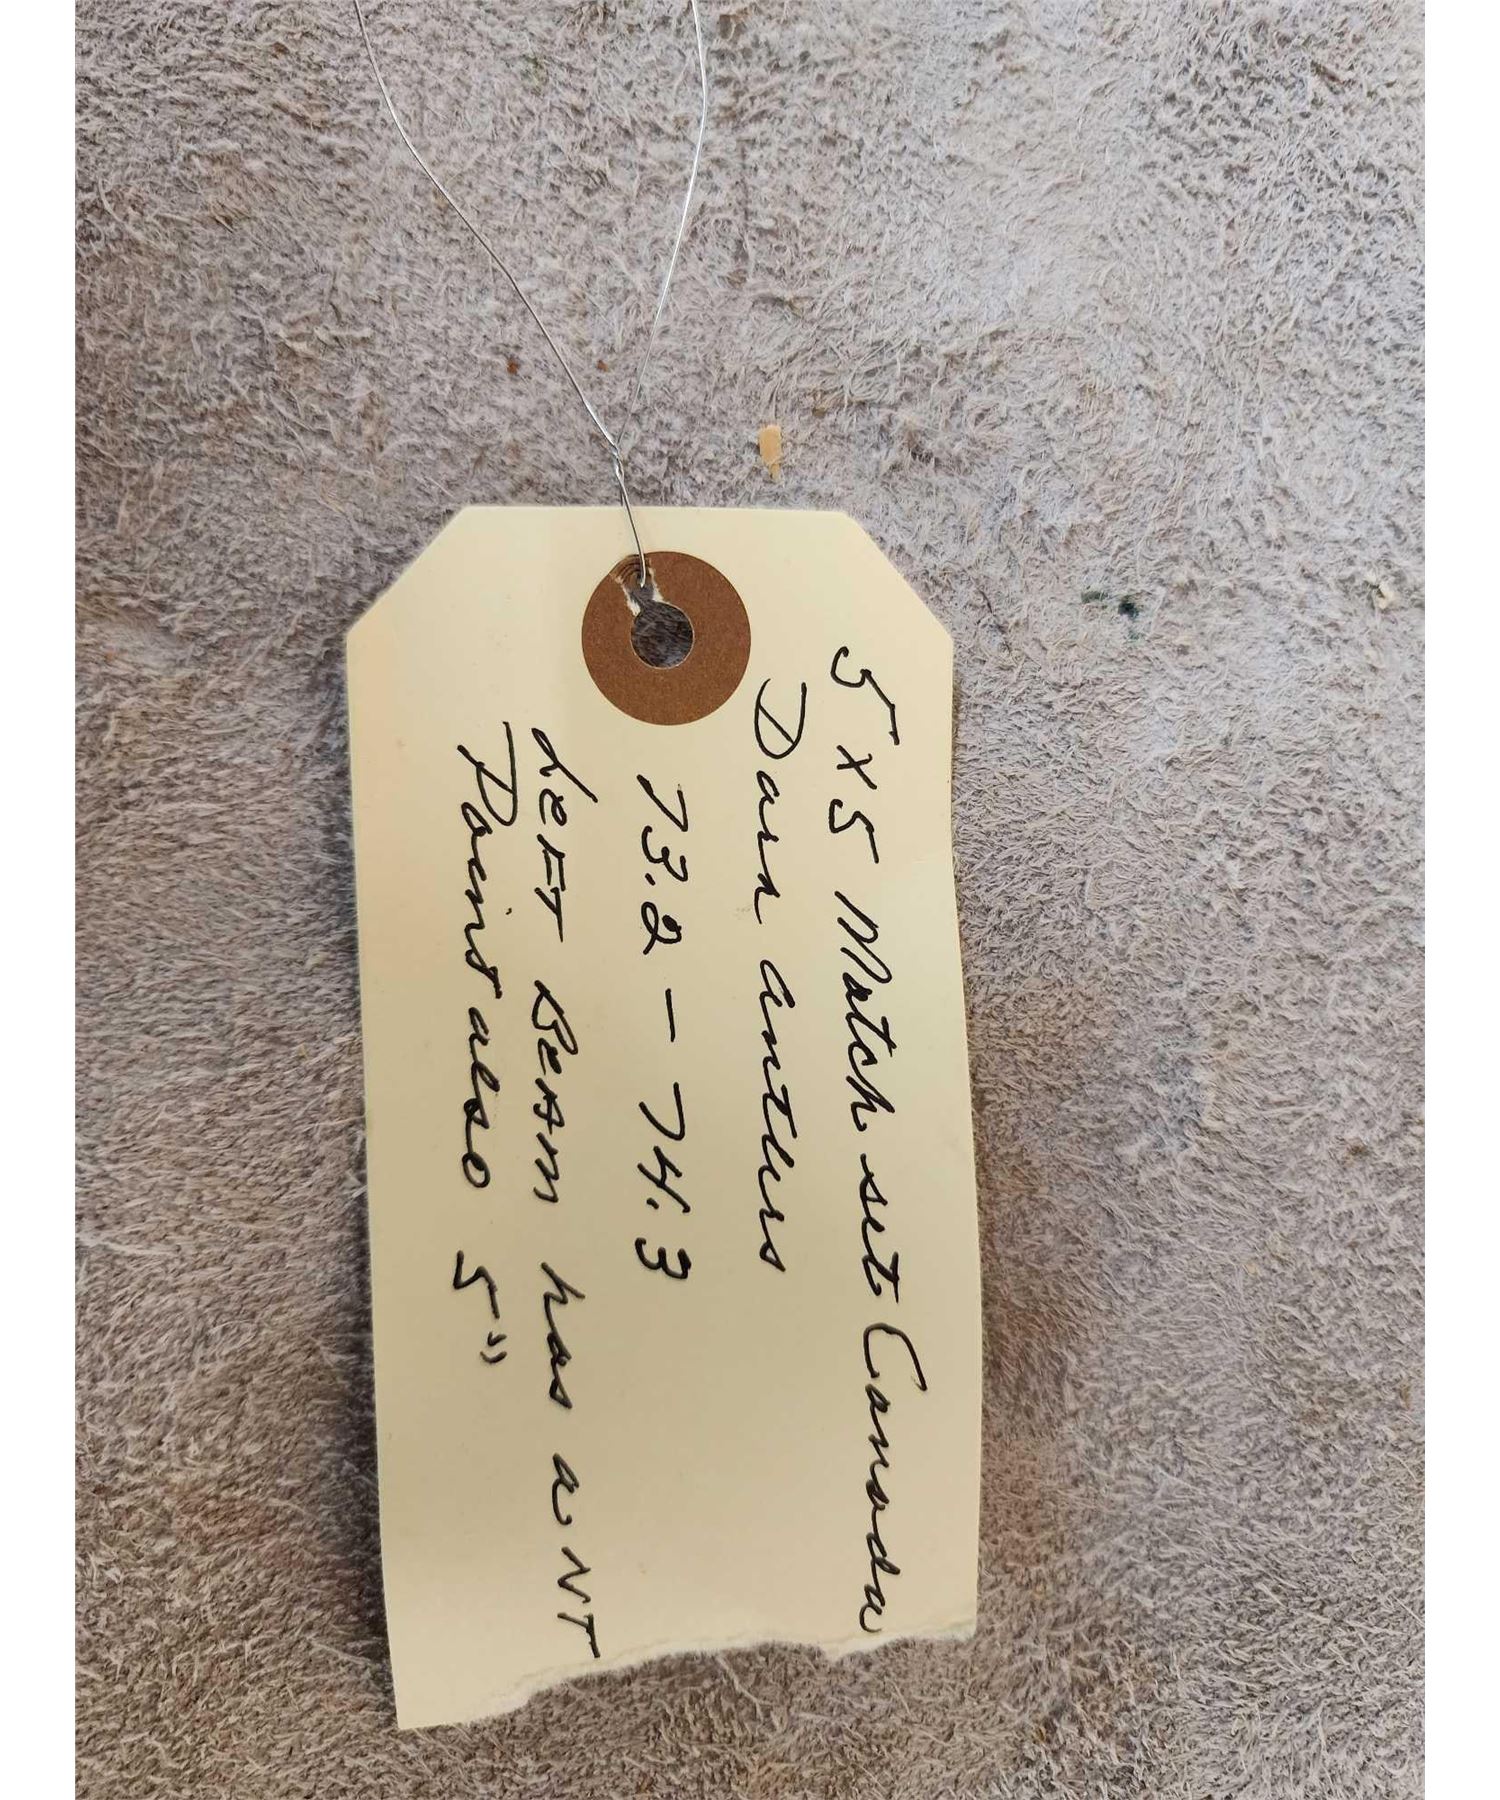 5 x 5 Match set Canada
Darn antlers
73.2 – 74.3
LeFT BeAm has a NT
Point also 5"